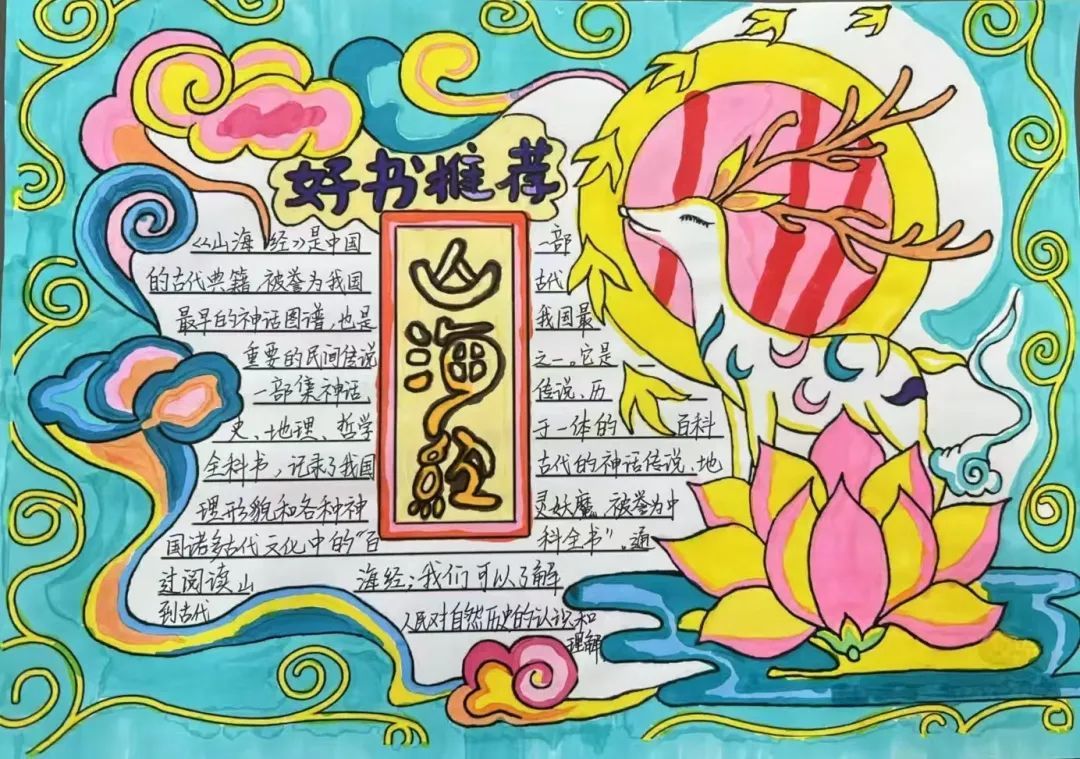 好书推荐
山海经
《山海经》是中国 一部
的古代典籍,被誉为我国 古代
最早的神话图谱,也是 我国最
重要的民间传说 之一。它是
一部集神话、 传说、历
史、地理、哲学 于一体的 百科
全科书,记录了我国 古代的神话传说、地
理形貌和各种神 灵妖魔,被誉为中
国诸多古代文化中的"百 科全书"。通
过阅读山 海经;我们可以了解
到古代 人民对自然历史的认识和
理解